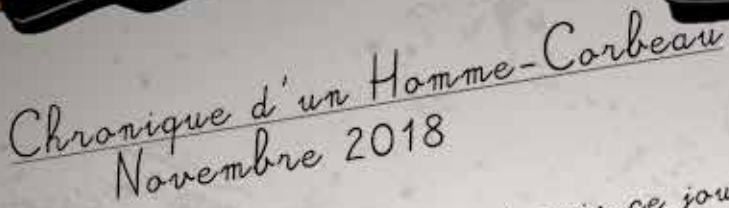 Chronique d'un Homme-Corbeau
Novembre 2018
ce jou